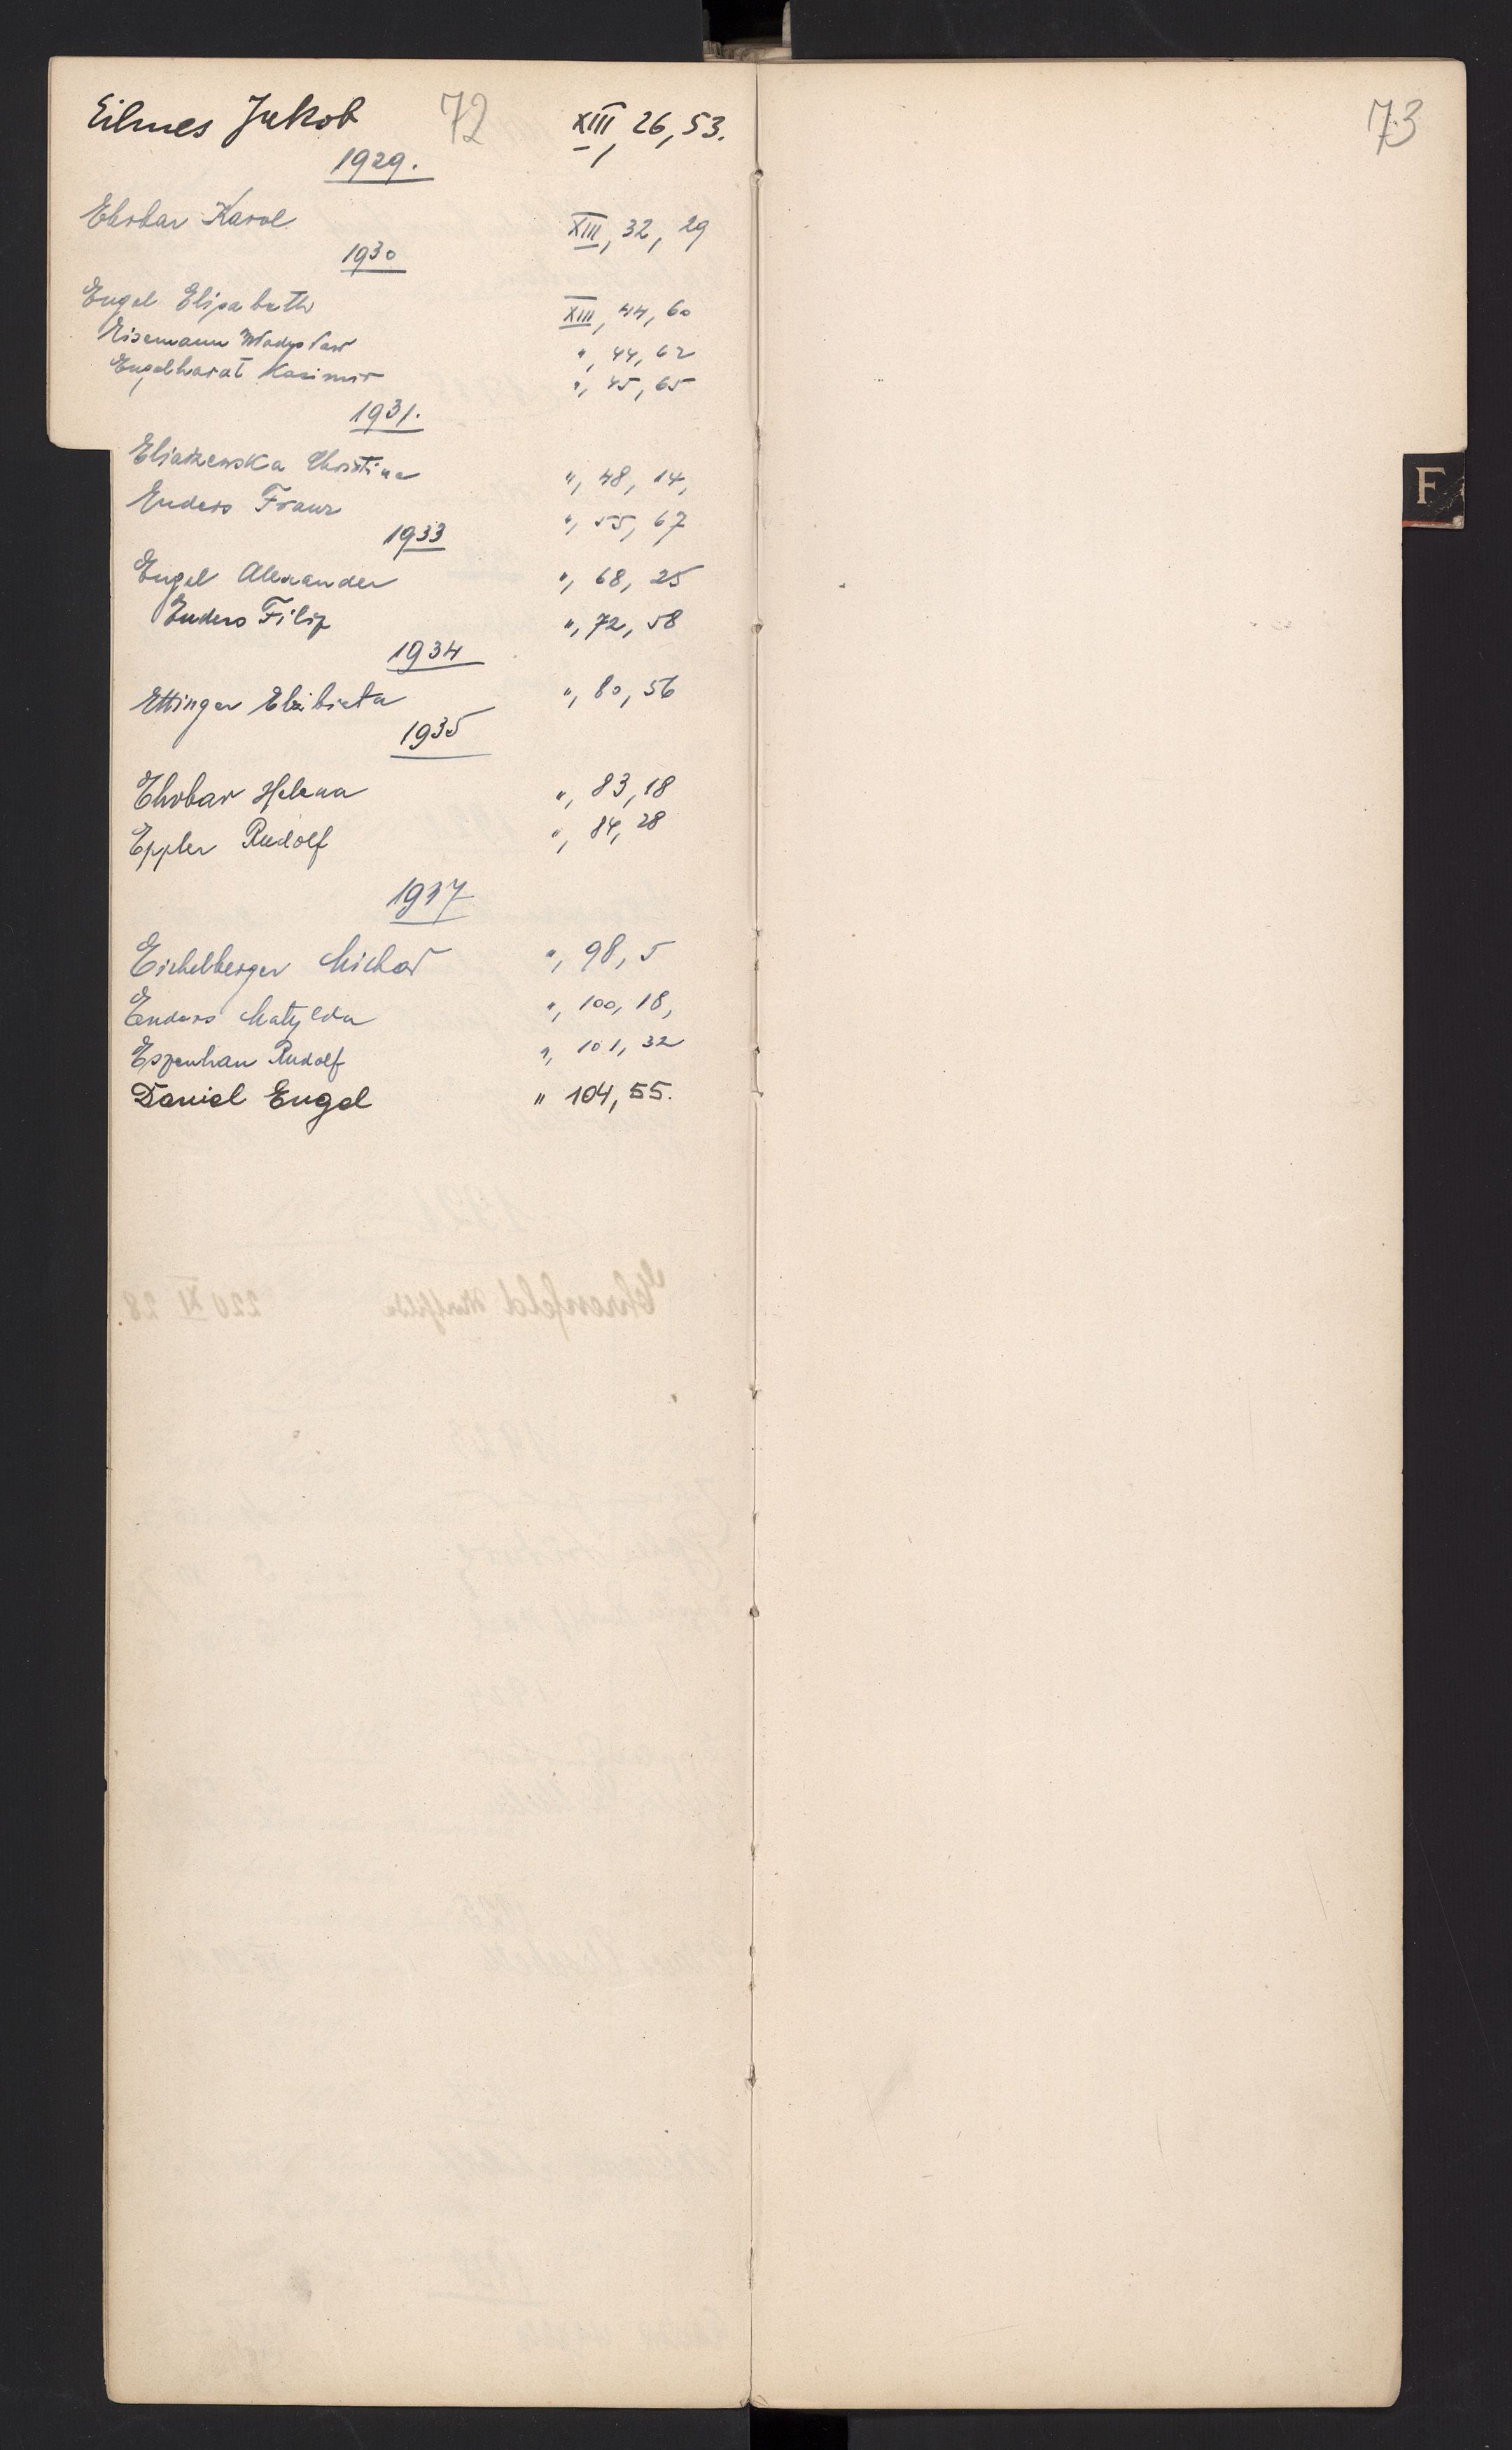 Eilmes Jakob 72 XIII, 26, 53.
1929.
Ehrbar Karol XIII, 32, 29
1930
Engel Elisabeth XIII, 44, 60
Eisemann Władysław ", 44, 62
Engelhardt Kasimir ", 45, 65
1931.
Christina ", 48, 14,
Enders Franz ", 55, 67
1933
Engel Alexander ", 68, 25
Enders Filip ", 72, 58
1934
Ettinger Elżbieta ", 80, 56
1935
Ehrbar Helena ", 83, 18
Eppler Rudolf ", 84, 28
1937
Eichelberger Michał ", 98, 5
Enders Matylda ", 100, 18,
Espenhan Rudolf ", 101, 32
Daniel Engel " 104, 55.
73
F